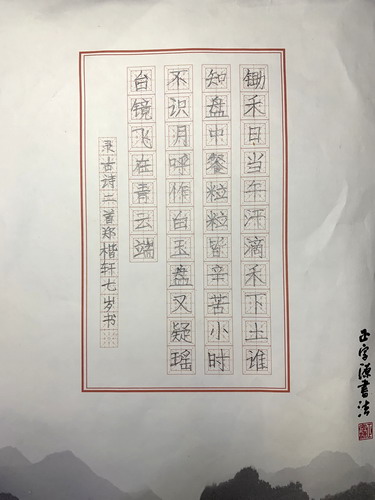 锄禾日当午汗滴禾下土谁
知盘中餐粒粒皆辛苦小时
不识月呼作白玉盘又疑瑶
台镜飞在青云端
录古诗二首郑楷轩七岁书
正字源书法